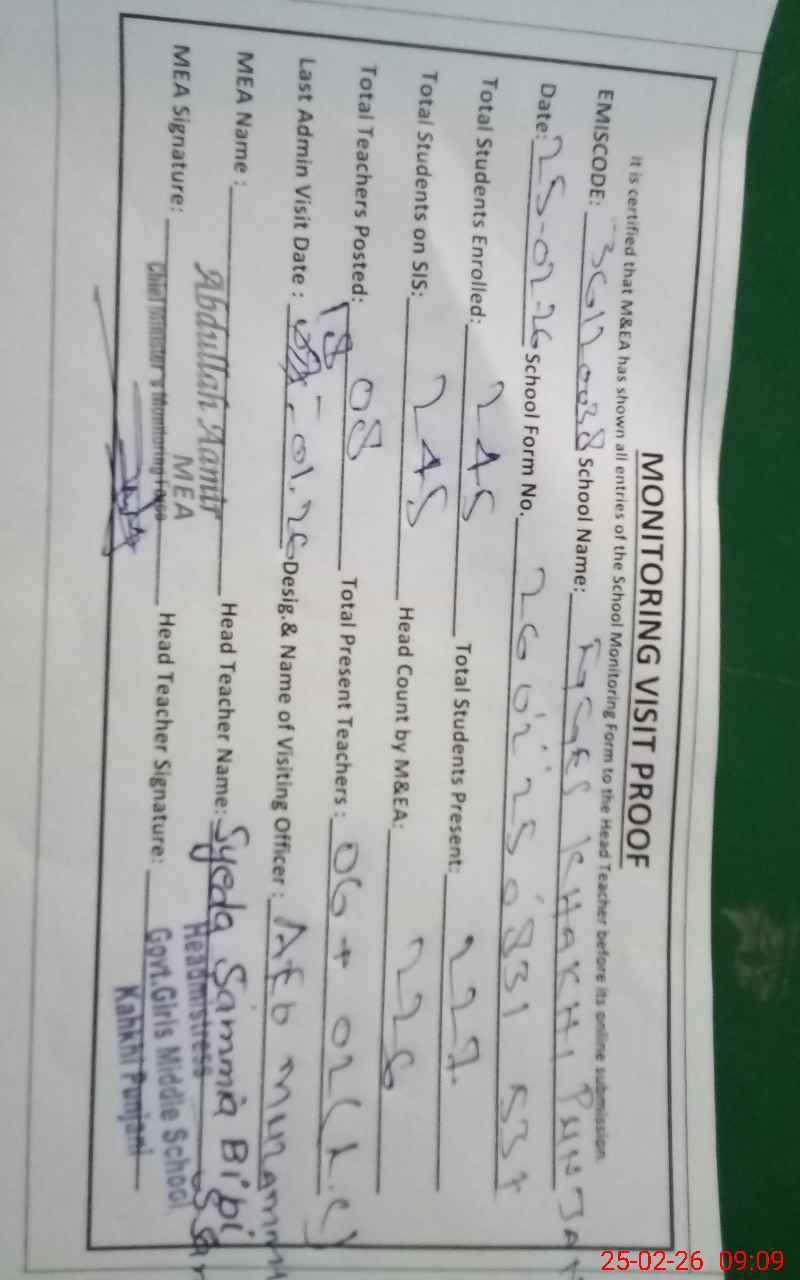 MONITORING VISIT PROOF
It is certified that M&EA has shown all entries of the School Monitoring Form to the Head Teacher before its online submission.
EMISCODE: School Name: KHAKHI
Date: 25-02-26 School Form No. 26022508315
Total Students Enrolled: 245 Total Students Present: 227
Total Students on SIS: 245 Head Count by M&EA: 226
Total Teachers Posted: 08 Total Present Teachers: 06 + 02 (L.C)
Last Admin Visit Date: -01.26 Desig.& Name of Visiting Officer: AEO
MEA Name: Abdullah Aamir Head Teacher Name: Syeda Sammia Bibi
MEA
Headmistress
MEA Signature: Chief Minister's Monitoring Force Head Teacher Signature: Govt.Girls Middle School
Kahkhi Punjani
25-02-26 09:09